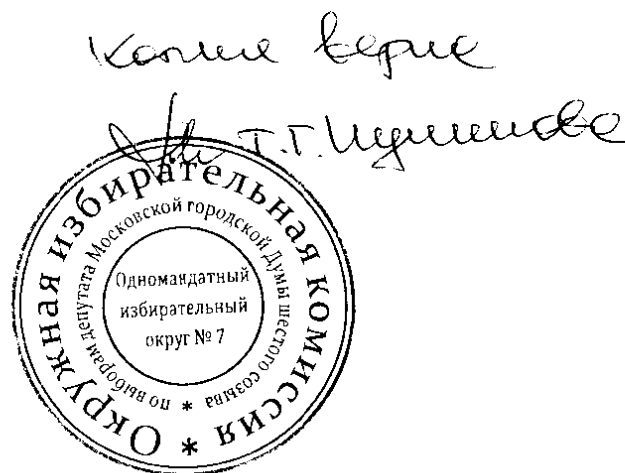 Копия верна
Т.Г.
Окружная избирательная комиссия *
по выборам депутата Московской городской Думы шестого созыва *
Одномандатный
избирательный
округ № 7